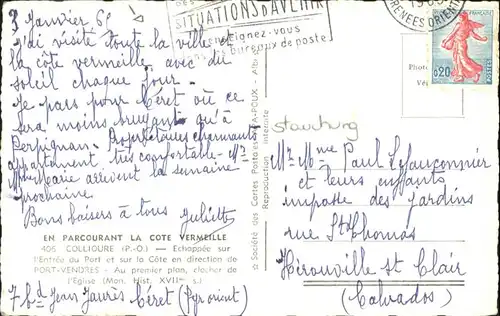 3 Janvier 65
j'ai visité toute la ville et
la côte vermeille avec du
soleil chaque jour.
Je pars pour Céret où ce
sera moins bruyant qu'à
Perpignan. Propriétaires charmants
appartement très confortable. Mr
Marie arrivent la semaine
prochaine.
Bons baisers à tous Juliette
EN PARCOURANT LA COTE VERMEILLE
406 COLLIOURE (P.-O.) — Echappée sur
l'Entrée du Port et sur la Côte en direction de
PORT-VENDRES — Au premier plan, clocher de
l'Eglise (Mon. Hist. XVIIme s.)
7 bd Jean Jaurès Céret (Pyr orient)
SITUATIONS D'AVENIR
renseignez-vous
bureaux de poste
PYRENEES ORIENT
Société des Cartes Postales APA-POUX - Albi
Reproduction interdite
Phot
Vé
0,20
Mr Mme Paul Lefauconnier
et leurs enfants
impasse des jardins
rue St Thomas
Hérouville St Clair
(Calvados)